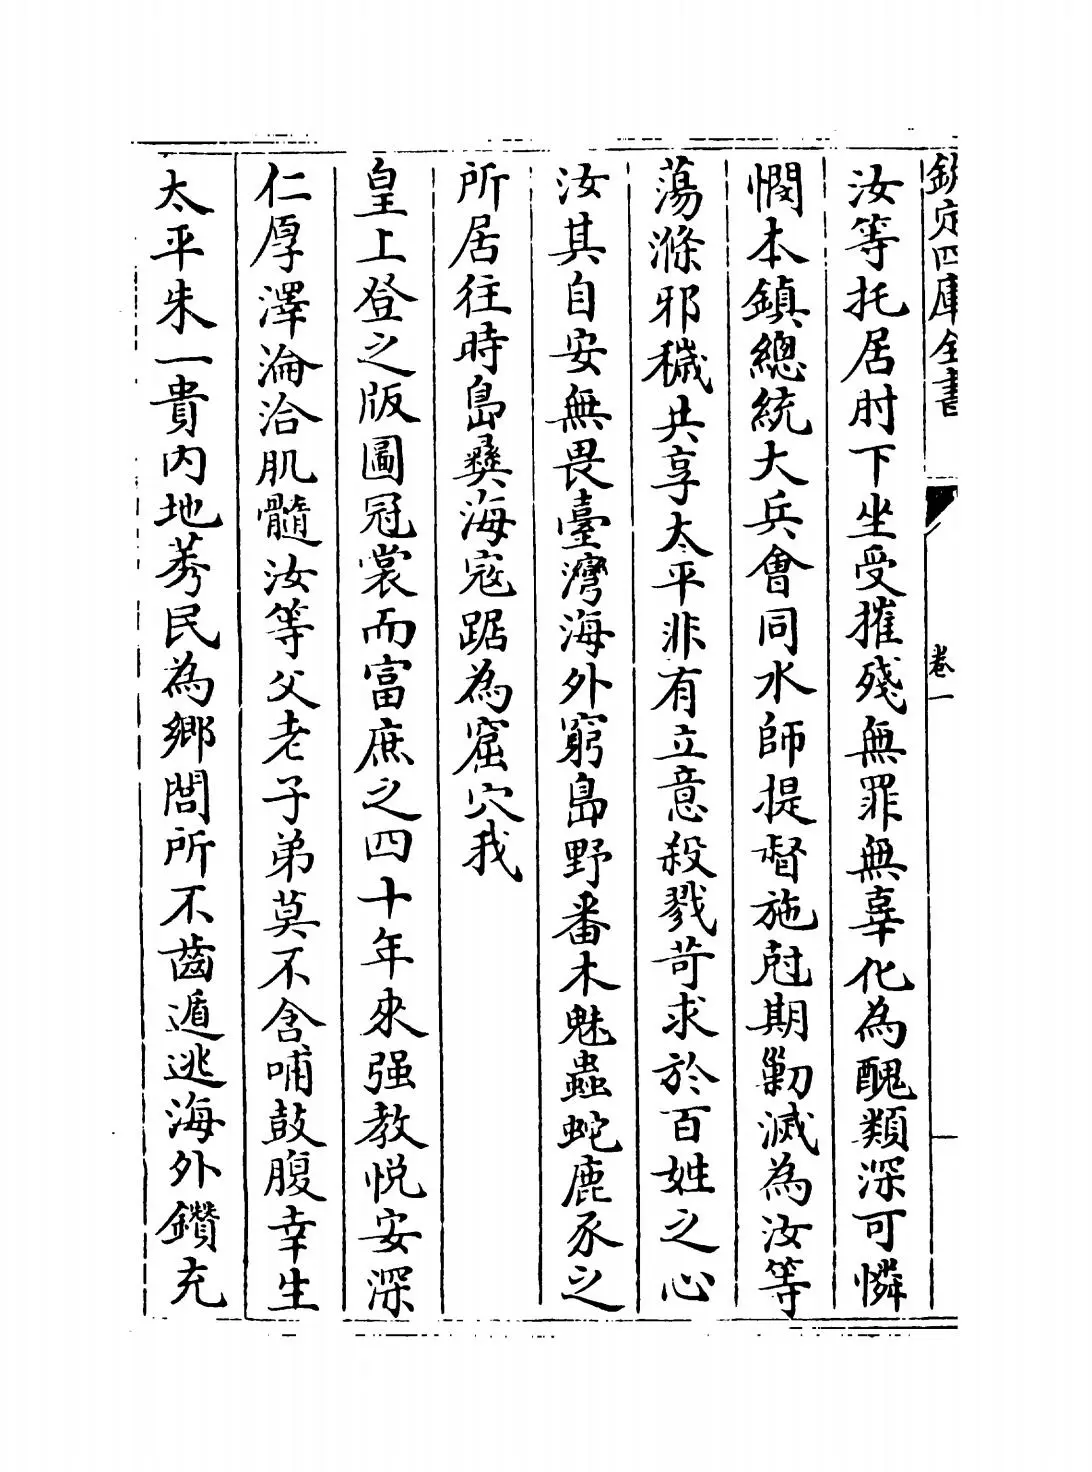 欽定四庫全書
卷一
汝等托居肘下坐受摧殘無罪無辜化為醜類深可憐
憫本鎮總統大兵會同水師提督施尅期勦滅為汝等
蕩滌邪穢共享太平非有立意殺戮苛求於百姓之心
汝其自安無畏臺灣海外窮島野番木魅蟲蛇鹿豕之
所居往時島彝海寇踞為窟穴我
皇上登之版圖冠裳而富庶之四十年來强教悦安深
仁厚澤淪洽肌髓汝等父老子弟莫不含哺鼓腹幸生
太平朱一貴內地莠民為鄉閭所不齒遁逃海外鑽充